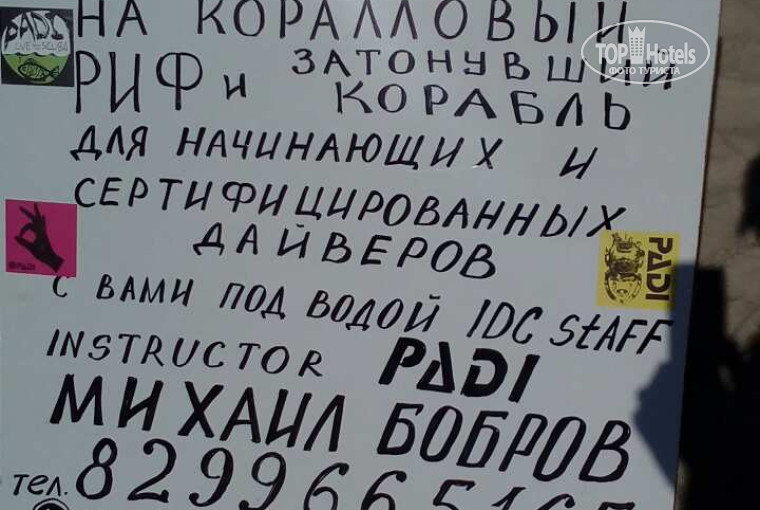 НА КОРАЛЛОВЫЙ
РИФ и ЗАТОНУВШИЙ
КОРАБЛЬ
ДЛЯ НАЧИНАЮЩИХ И
СЕРТИФИЦИРОВАННЫХ
ДАЙВЕРОВ
С ВАМИ ПОД ВОДОЙ IDC StAFF
INSTRUCTOR PADI
МИХАИЛ БОБРОВ
тел.
PADI
PADI
TOP Hotels
ФОТО ТУРИСТА